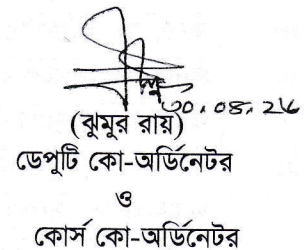 ৩০.০৪.২৬
(ঝুমুর রায়)
ডেপুটি কো-অর্ডিনেটর
ও
কোর্স কো-অর্ডিনেটর